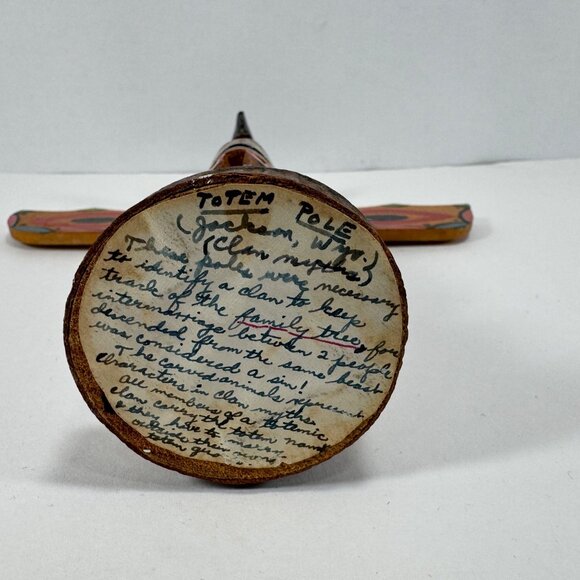 TOTEM POLE
(Jackson, Wm.)
(Clan myths)
These poles were necessary
to identify a clan to keep
track of the family tree, for
intermarriage between 2 people
descended from the same beast
was considered a sin!
The carved animals represent
characters in clan myths.
All members of a totemic
clan carry the totem name
& they have to marry
outside their own
totem